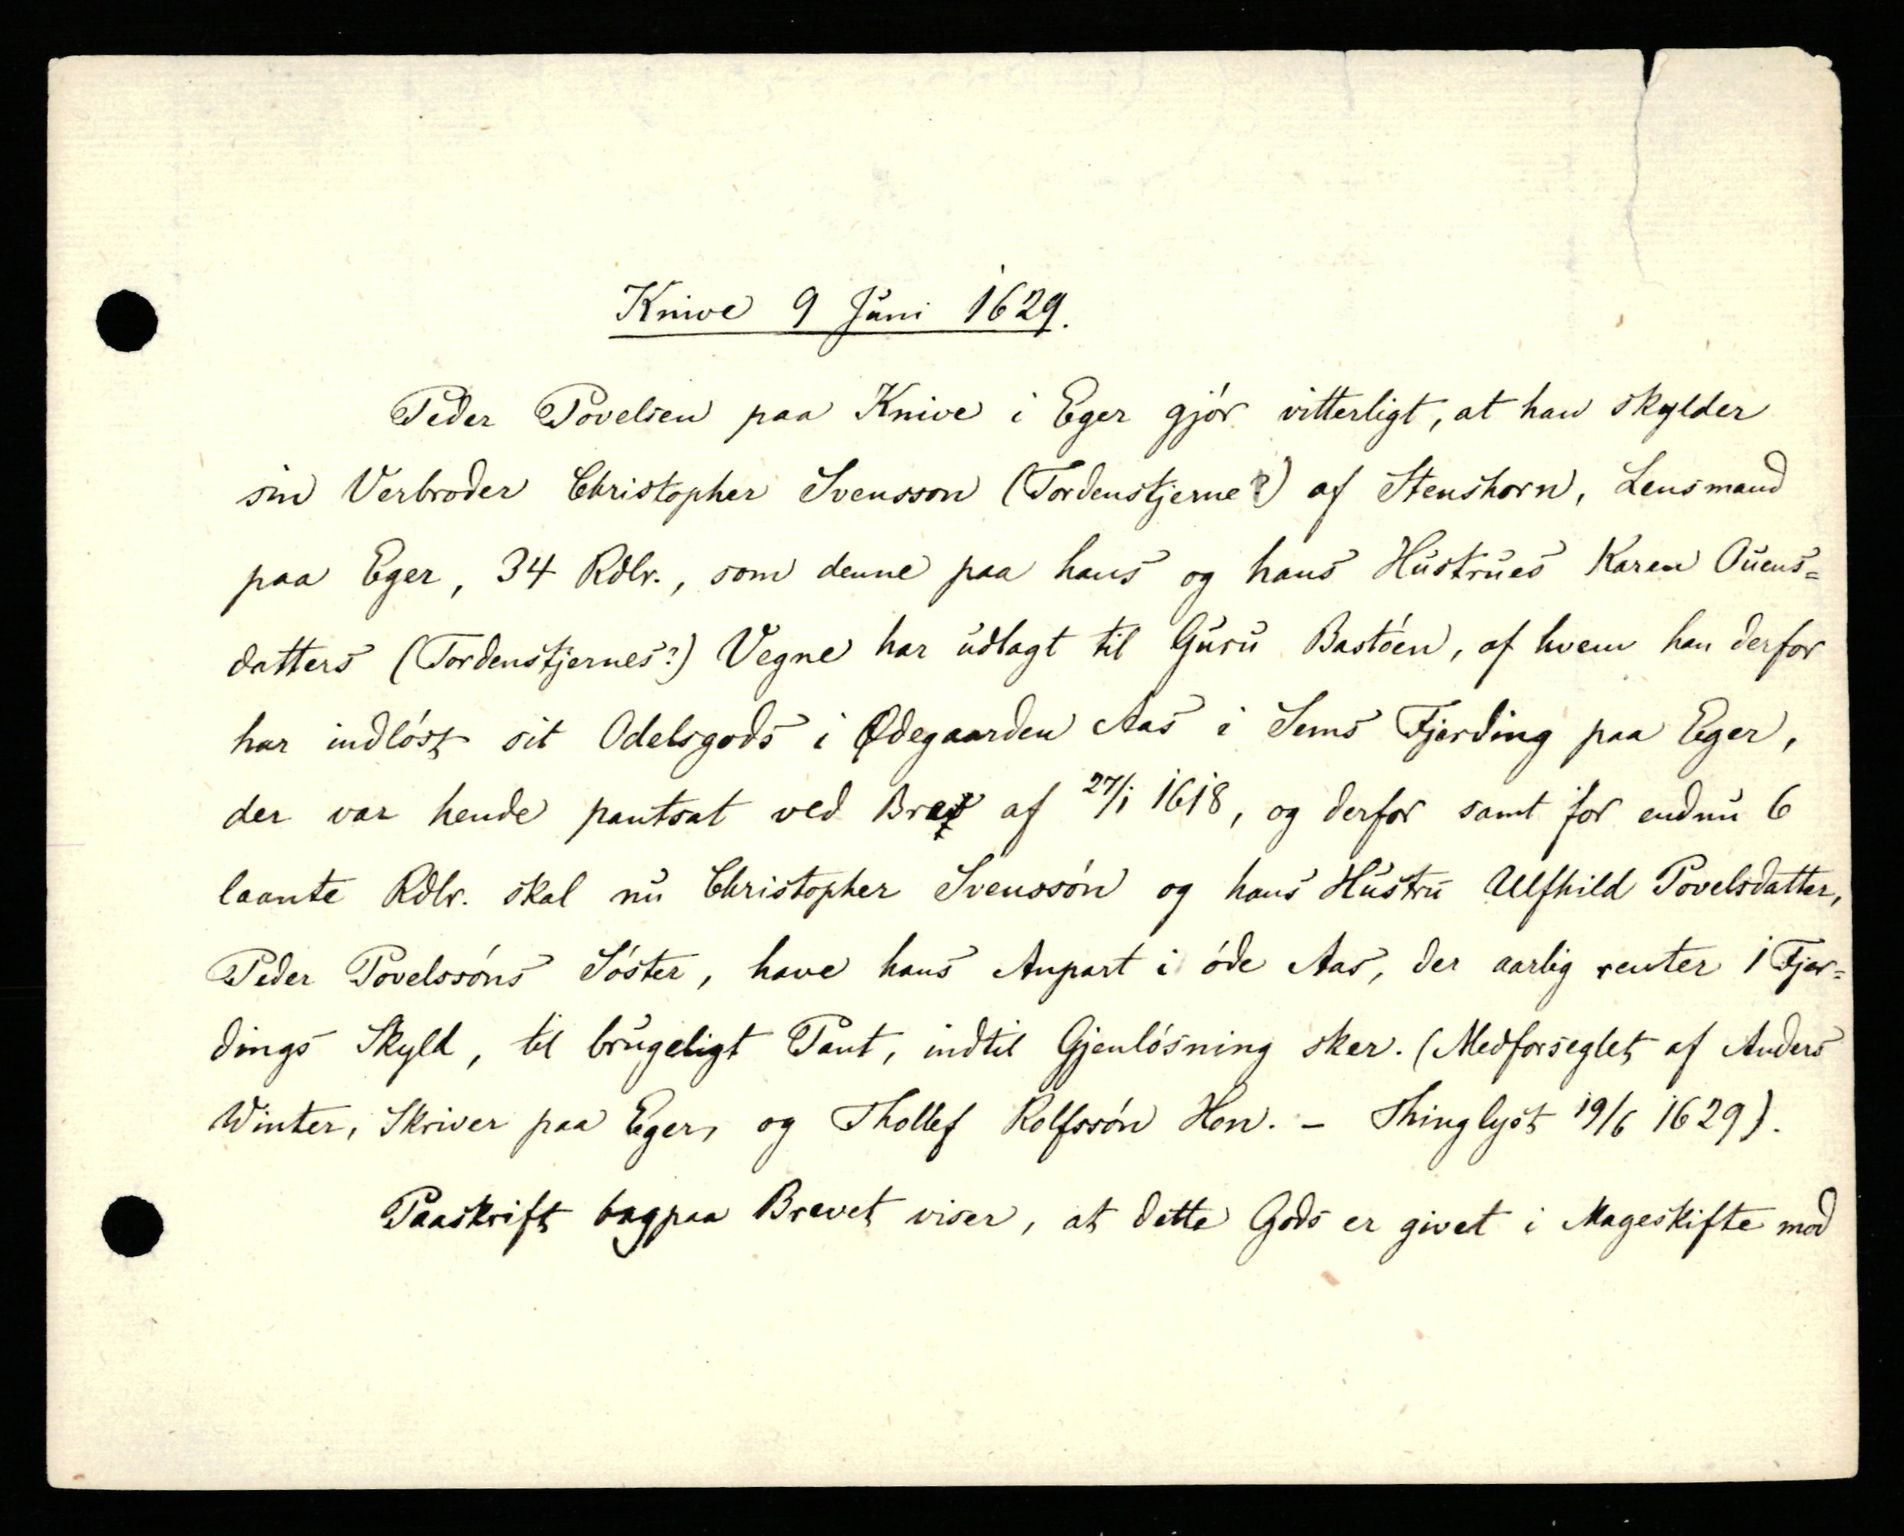 Knive 9 Juni 1629.
Peder Povelsen paa Knive i Eger gjór vitterligt, at han skylder
sin Verbroder Christopher Svensson (Tordenstjerne?) af Stenshorn, Lensmand
paa Eger, 34 Rdlr., som denne paa hans og hans Hustrues Karen Ouens=
datters (Tordenstjernes?) Vegne har udlagt til Guru Bastóen, af hvem han derfor
har indlóst sit Odelsgods i Ødegaarden Aas i Sems Fjerding paa Eger,
der var hende pantsat ved Brev af 27/1 1618, og derfor samt for endnu 6
laante Rdlr. skal nu Christopher Svenssón og hans Hustru Ulfhild Povelsdatter,
Peder Povelssóns Sóster, have hans Anpart i óde Aas, der aarlig renter 1 Fjer=
dings Skyld, til brugeligt Pant, indtil Gjenlósning sker. (Medforseglet af Anders
Winter, Skriver paa Eger, og Thollef Rolfssón Hon. – Thinglyst 19/6 1629).
Paaskrift bagpaa Brevet viser, at dette Gods er givet i Mageskifte mod